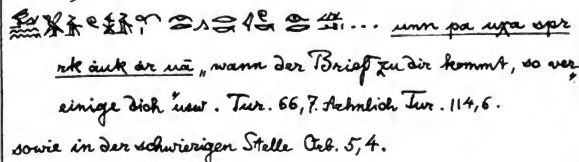 ... unn pa uχa spr
rk áuk ár uā „wann der Brief zu dir kommt, so ver
einige dich" usw. Tur. 66,7. Aehnlich Tur. 114,6.
sowie in der schwierigen Stelle Orb. 5,4.